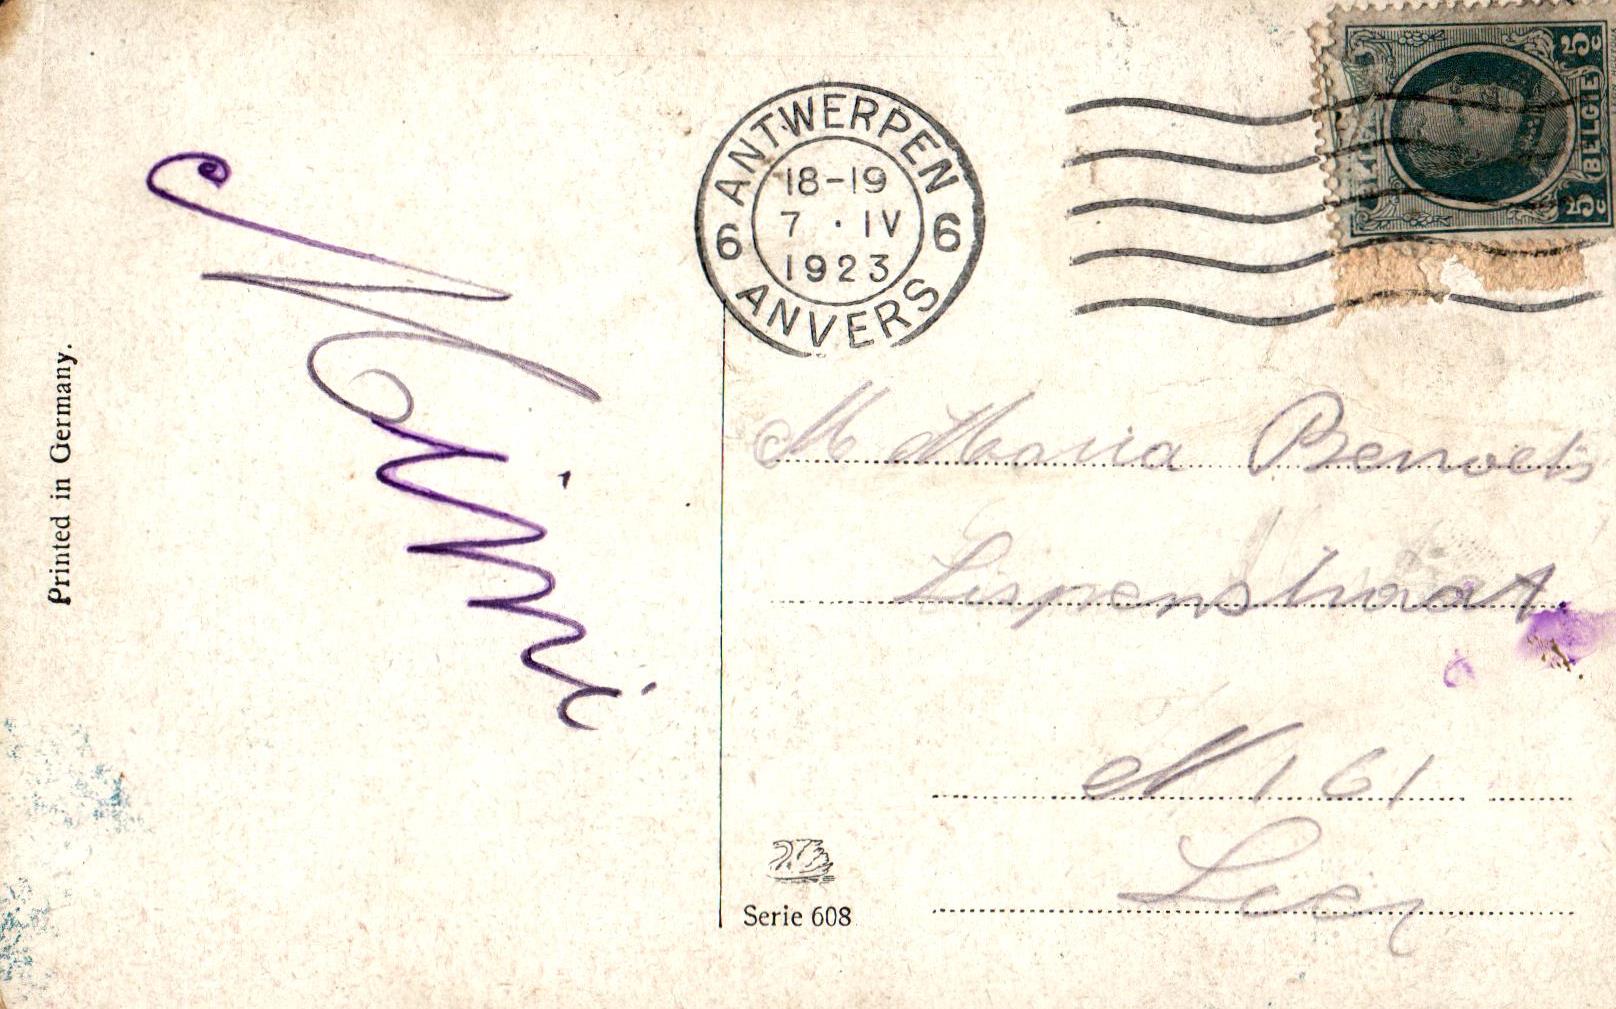 Printed in Germany.
Mimi
ANTWERPEN
6 6
18-19
7 · IV
1923
ANVERS
5c BELGIE 5c
M Maria Benoets
Lispenstraat
N 161
Lier
Serie 608